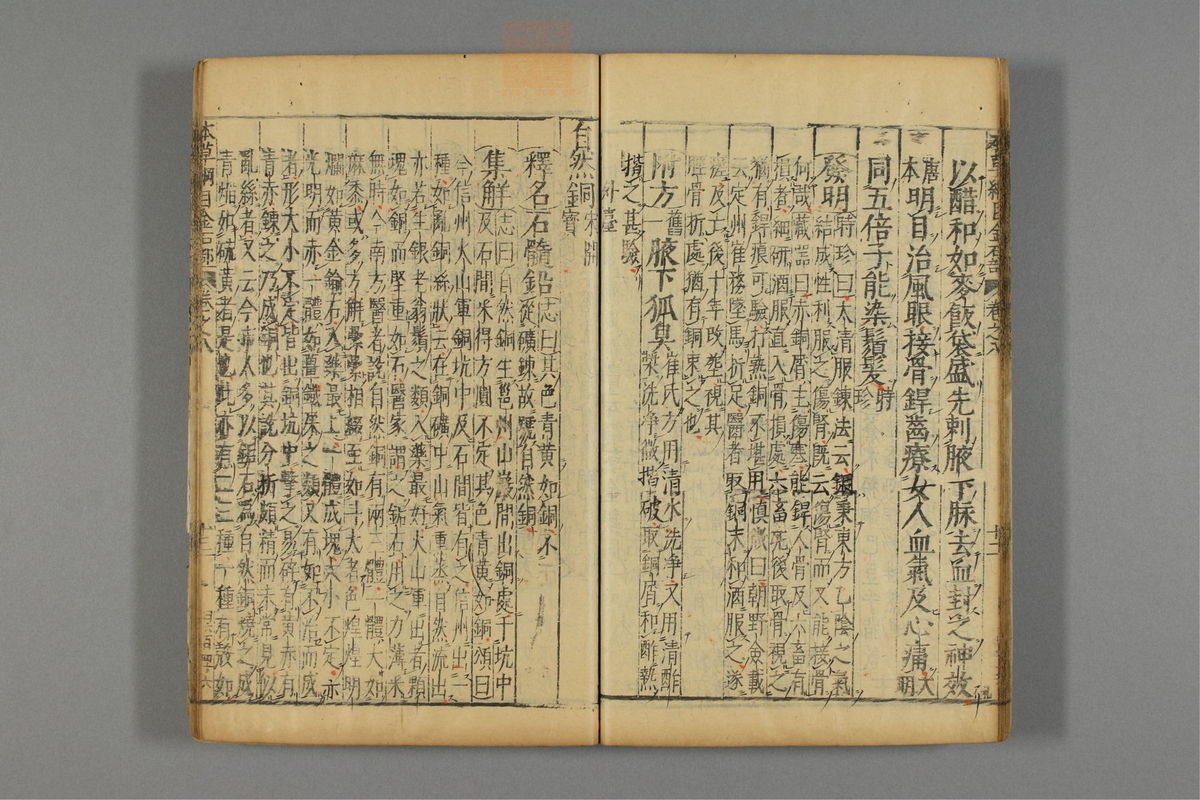 以醋和如麥飯袋盛先刺腋下脉去血封之神效
唐本明目治風眼接骨銲齒療女人血氣及心痛大明
同五倍子能染鬚髮時珍
發明時珍曰太清服鍊法云銅秉東方乙陰之氣
結成性利服之傷腎既云傷腎而又能接骨
何哉藏器曰赤銅屑主傷寒能銲人骨及六畜有
損者細研酒服直入骨損處六畜死後取骨視之
猶有銲痕可驗打熟銅不堪用慎微曰朝野僉載
云定州崔務墜馬折足醫者取銅末和酒服之遂
瘥及亡後十年改葬視其
脛骨折處猶有銅束之也
附方舊一腋下狐臭崔氏方用清水洗淨又用清酢
漿洗淨微揩破取銅屑和酢熱
揩之甚驗外臺
自然銅宋開寶
釋名石髓鉛志曰其色青黄如銅不
從礦鍊故號自然銅
集解志曰自然銅生邕州山巖間出銅處于坑中
及石間采得方圓不定其色青黄如銅頌曰
今信州火山軍銅坑中及石間皆有之信州出一
種如亂銅絲狀云在銅礦中山氣熏蒸自然流出
亦若生銀老翁鬚之類入藥最好火山軍出者顆
塊如銅而堅重如石醫家謂之鉐石用之力薄采
無時今南方醫者說自然銅有兩三體一體大如
麻黍或多方解纍纍相綴至如斗大者色煌煌明
爛如黄金鍮石入藥最上一體成塊大小不定亦
光明而赤一體如薑鐵屎之類又有如不冶而成
者形大小不定皆出銅坑中擊之易碎有黄赤有
青赤鍊之乃成銅也其說分析頗精而未嘗見似
亂絲者又云今市人多以鉐石爲自然銅燒之成
青焰如硫黄者是也此亦有二三種一種有殻如